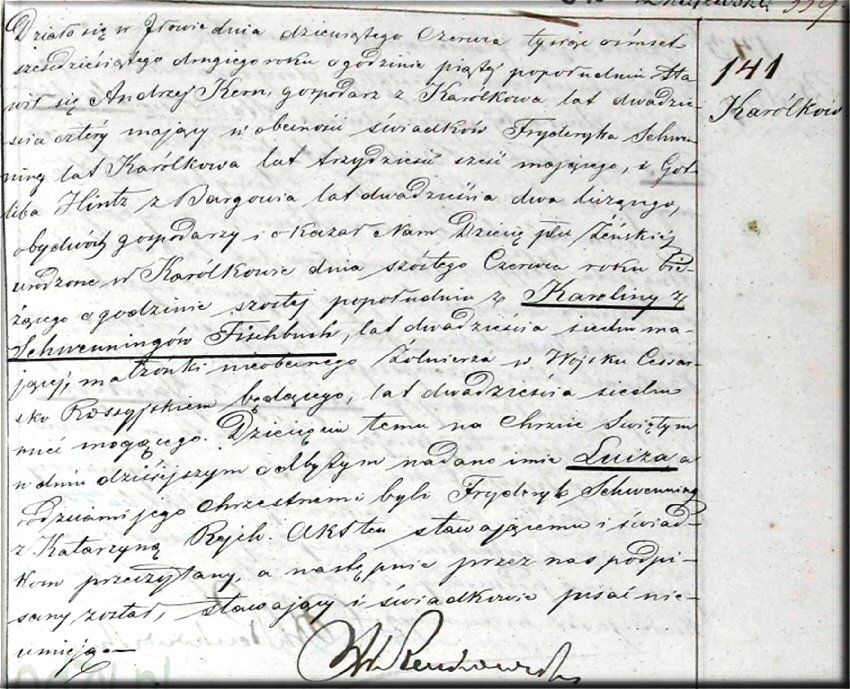 359
141
Karólkow
Działo się w Iłowie dnia dziewiątego Czerwca tysiąc ośmset
sześdziesiątego drugiego roku o godzinie piątej popołudniu Sta-
wił się Andrzej Kern, gospodarz z Karólkowa lat dwadzie-
ścia cztery mający w obecności świadków Fryderyka Schwe-
ning lat Karólkowa lat trzydzieści sześć mającego, i Got-
liba Hintz z Bargowia lat dwadzieścia dwa liczącego,
obydwóch gospodarzy i okazał Nam Dziecię płci Żeńskiej
urodzone w Karólkowie dnia szóstego Czerwca roku bie-
żącego o godzinie szóstej popołudniu z Karoliny z
Schwenningów Fischbuch, lat dwadzieścia siedm ma-
jącej, małżonki nieobecnego Żołnierza w Wojsku Cesar-
sko Rossyjskiem będącego, lat dwadzieścia siedm
mieć mogącego. Dziecięciu temu na Chrzcie Świętym
w dniu dzisiejszym odbytym nadano imie Luiza a
rodzicami jego chrzestnemi byli Fryderyk Schwenning
z Katarzyną Rejch. Akt ten stawającemu i świad-
kom przeczytany, a następnie przez nas podpi-
sany został, stawający i świadkowie pisać nie-
umieją